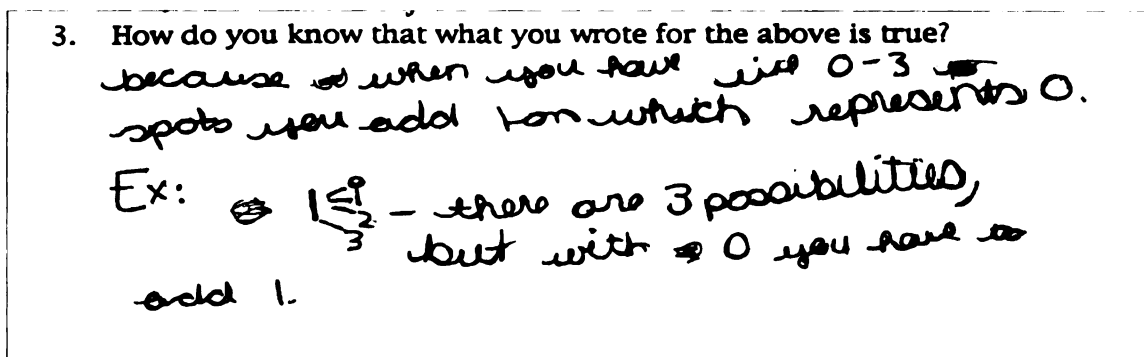 3. How do you know that what you wrote for the above is true?
because when you have like 0-3
spots you add 1 on which represents 0.
Ex: 1 0 1 2 3 - there are 3 possibilities,
but with 0 you have to
add 1.